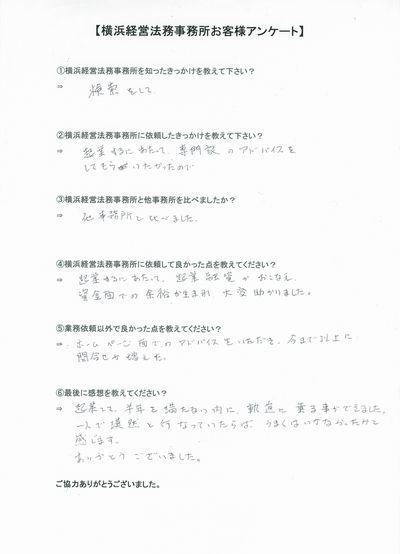 【横浜経営法務事務所お客様アンケート】
①横浜経営法務事務所を知ったきっかけを教えて下さい?
⇒ 検索をして
②横浜経営法務事務所に依頼したきっかけを教えて下さい?
⇒ 起業するにあたって、専門家のアドバイスを
してもらいたかったので
③横浜経営法務事務所と他事務所を比べましたか?
⇒ 他事務所と比べました。
④横浜経営法務事務所に依頼して良かった点を教えてください?
⇒ 起業するにあたって、起業融資がおこなえ、
資金面での余裕が生まれ 大変助かりました。
⑤業務依頼以外で良かった点を教えてください?
⇒ ホームページ面でのアドバイスをいただき、今まで以上に
問合せが増えた。
⑥最後に感想を教えてください?
⇒ 起業して、半年を満たない内に、軌道に乗る事ができました。
一人で漠然と行なっていたらば うまくはいかなかったかと
感じます。
ありがとうございました。
ご協力ありがとうございました。